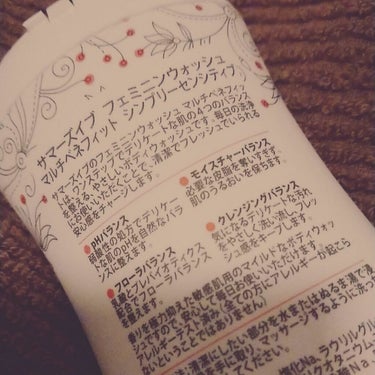 サマーズイブ フェミニンウォッシュ
マルチベネフィット シンプリーセンシティブ
サマーズイブのフェミニンウォッシュ マルチベネフィッ
トは、ワンステップでデリケートな肌の4つのバランス
を整える、やさしいボディウォッシュです。毎日の洗浄
にお使いいただくことで、清潔でフレッシュでいられる
安心感をチャージします。
●pHバランス
弱酸性の処方でデリケー
トな肌のpHを自然なバラ
ンスに整えます。
●モイスチャーバランス
必要な皮脂を奪いすぎず
肌のうるおいを保ちます。
●フローラバランス
乳酸とプレバイオティクス
配合でフローラバランス
を整えます。
●クレンジングバランス
気になるデリケートな汚れ
をやさしく洗い流しフレッ
シュ感をキープします。
香りを極力抑えた敏感肌用のマイルドなボディウォッ
シュですので、安心して毎日お使いいただけます。
アレルギーテスト済み。全ての方にアレルギーが起こら
ないということではありません。
清潔にしたい部分を水またはぬるま湯で
手に取り、マッサージするように洗っ
てください。
塩化Na、ラウリルグル
クオタニウム